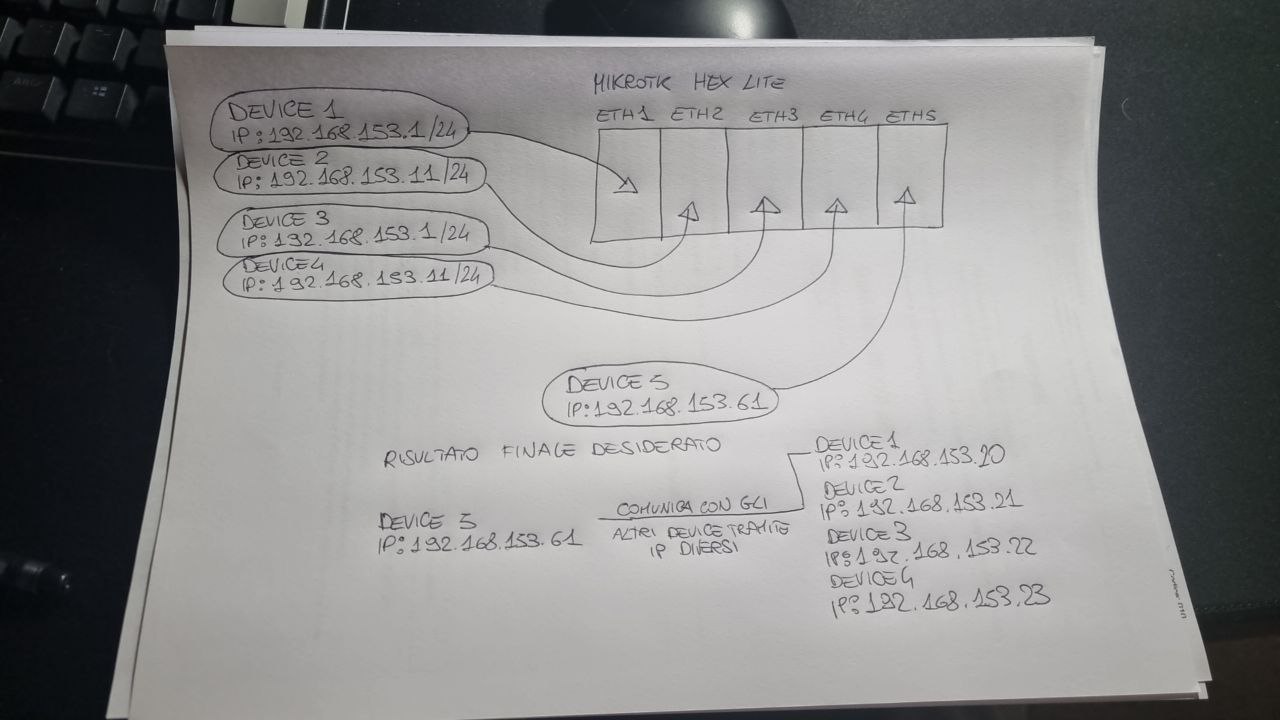 MIKROTIK HEX LITE
ETH1 ETH2 ETH3 ETH4 ETH5
DEVICE 1
IP: 192.168.153.1/24
DEVICE 2
IP: 192.168.153.11/24
DEVICE 3
IP: 192.168.153.1/24
DEVICE 4
IP: 192.168.153.11/24
DEVICE 5
IP: 192.168.153.61
RISULTATO FINALE DESIDERATO
DEVICE 5
IP: 192.168.153.61
COMUNICA CON GLI
ALTRI DEVICE TRAMITE
IP DIVERSI
DEVICE 1
IP: 192.168.153.20
DEVICE 2
IP: 192.168.153.21
DEVICE 3
IP: 192.168.153.22
DEVICE 4
IP: 192.168.153.23